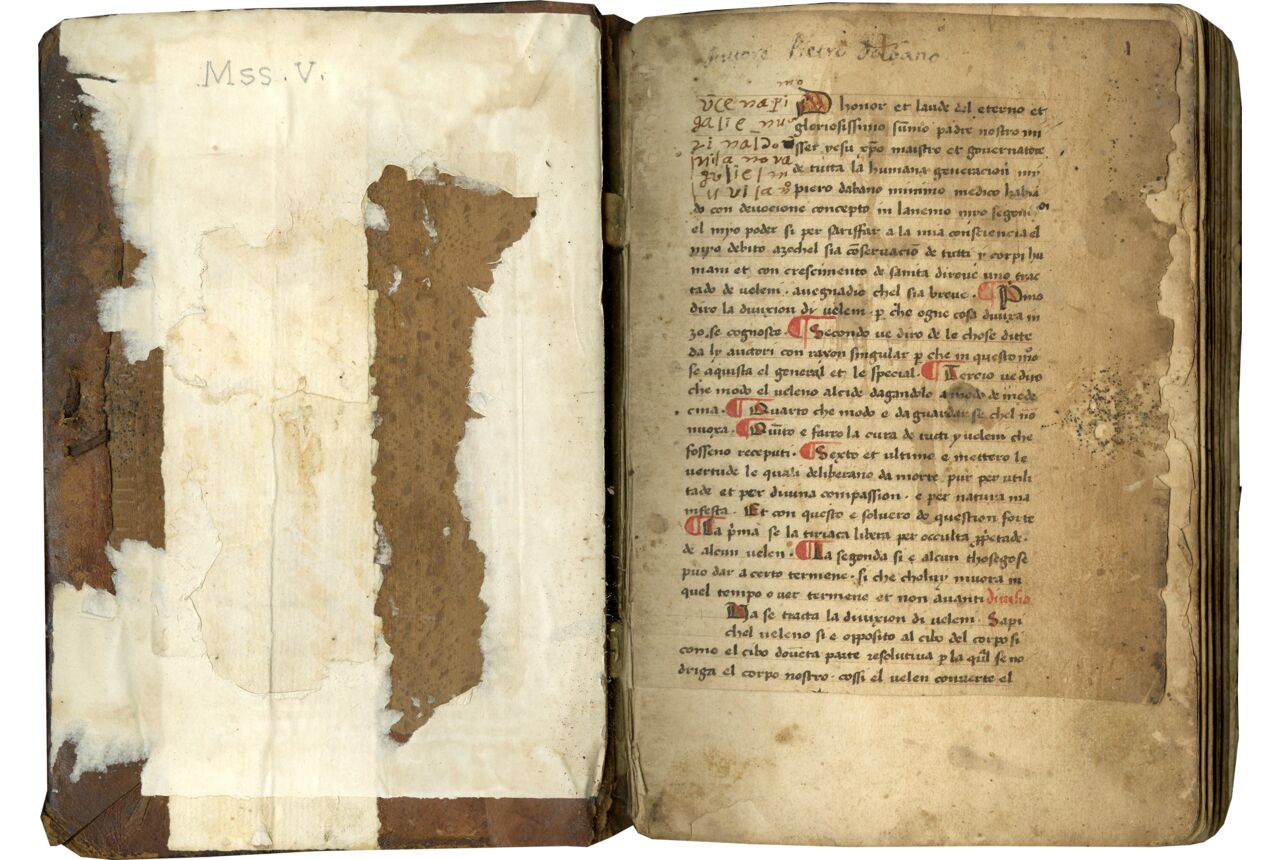 Mss. V.
Auttore Pietro Dabano
1
mo
vce napi
galie_nu
rinaldo
nila nova
gulielm
A D honor et laude del eterno et
gloriosissimo sumo padre nostro mi
sser yesu xpo maistro et governatore
de tutta la humana generacion my
piero dabano minimo medico habia
do con devocione concepto in lanemo myo segon
el myo poder si per satisffar a la mia consciencia el
myo debito azochel sia conservacion de tutti y corpi hu
mani et con crescimento de sanita dirove uno trac
tado de veleni. avegnadio chel sia breve. ¶ Pimo
diro la divixion di veleni. p che ogne cosa divixa in
zo se cognosce. ¶ Secondo ve diro de le chose ditte
da ly auctori con raxon singular p che in questo mo
se aquista el general et le special. ¶ Tercio ve diro
che modo el veleno alcide dagandolo a modo de mede
cina. ¶ Quarto che modo e da guardar se chel no
nuoxa. ¶ Quinto e farro la cura de tutti y veleni che
fosseno receputi. ¶ Sexto et ultimo e mettero le
vertude le quali deliberano da morte pur per utili
tade et per divina compassion. e per natura ma
nifesta. Et con questo e solvero de question forte
¶ La pma se la tiriaca libera per occulta ppetade.
de alcun velen. ¶ La segonda si e alcun thosego se
puo dar a certo termene. si che choluy muora in
quel tempo over termene et non avanti
Qua se tracta la divixion di veleni. Sapi
chel veleno si e opposito al cibo del corpo si
como el cibo doveta parte resolutiva p la qul se no
driga el corpo nostro. cossi el velen converte el